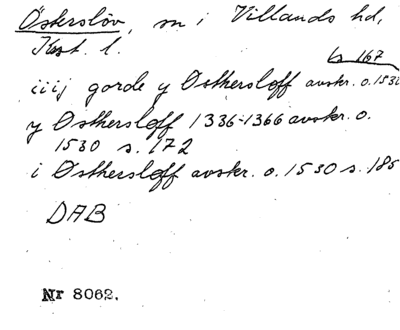 Österslöv, sn i Villands hd,
Krist. l.
s. 167
iiij gorde y Østhersloff avskr. o. 1530
y Østhersloff 1336-1366 avskr. o.
1530 s. 172
i Østhersloff avskr. o. 1530 s. 185
DAB
Nr 8062.